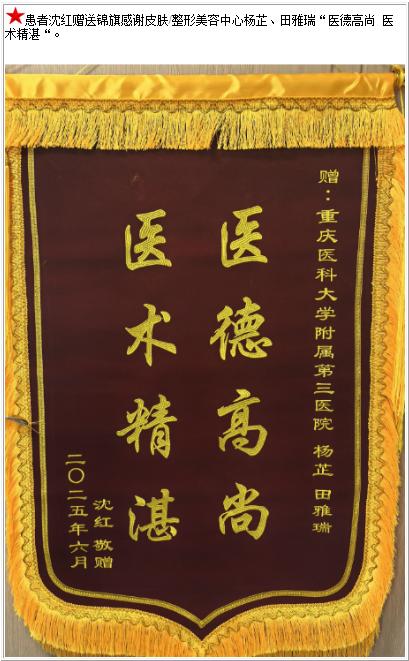 患者沈红赠送锦旗感谢皮肤/整形美容中心杨芷、田雅瑞“医德高尚 医
术精湛“。
赠：重庆医科大学附属第三医院 杨芷 田雅瑞
医德高尚
医术精湛
沈红 敬赠
二〇二五年六月